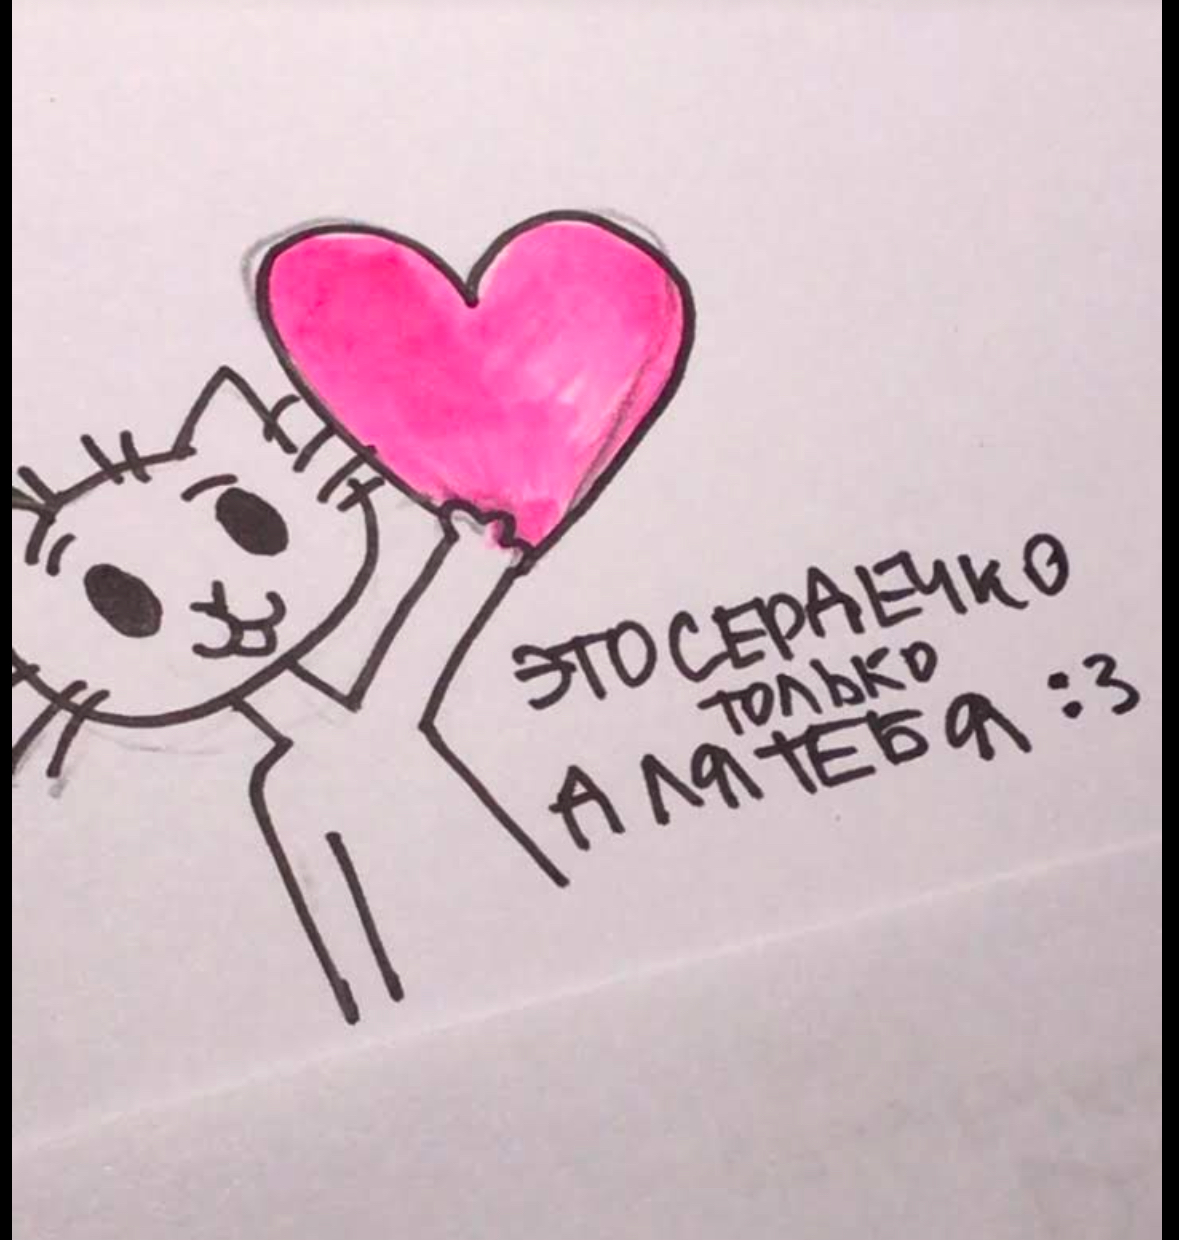 ЭТО СЕРДЕЧКО
ТОЛЬКО
ДЛЯ ТЕБЯ :3